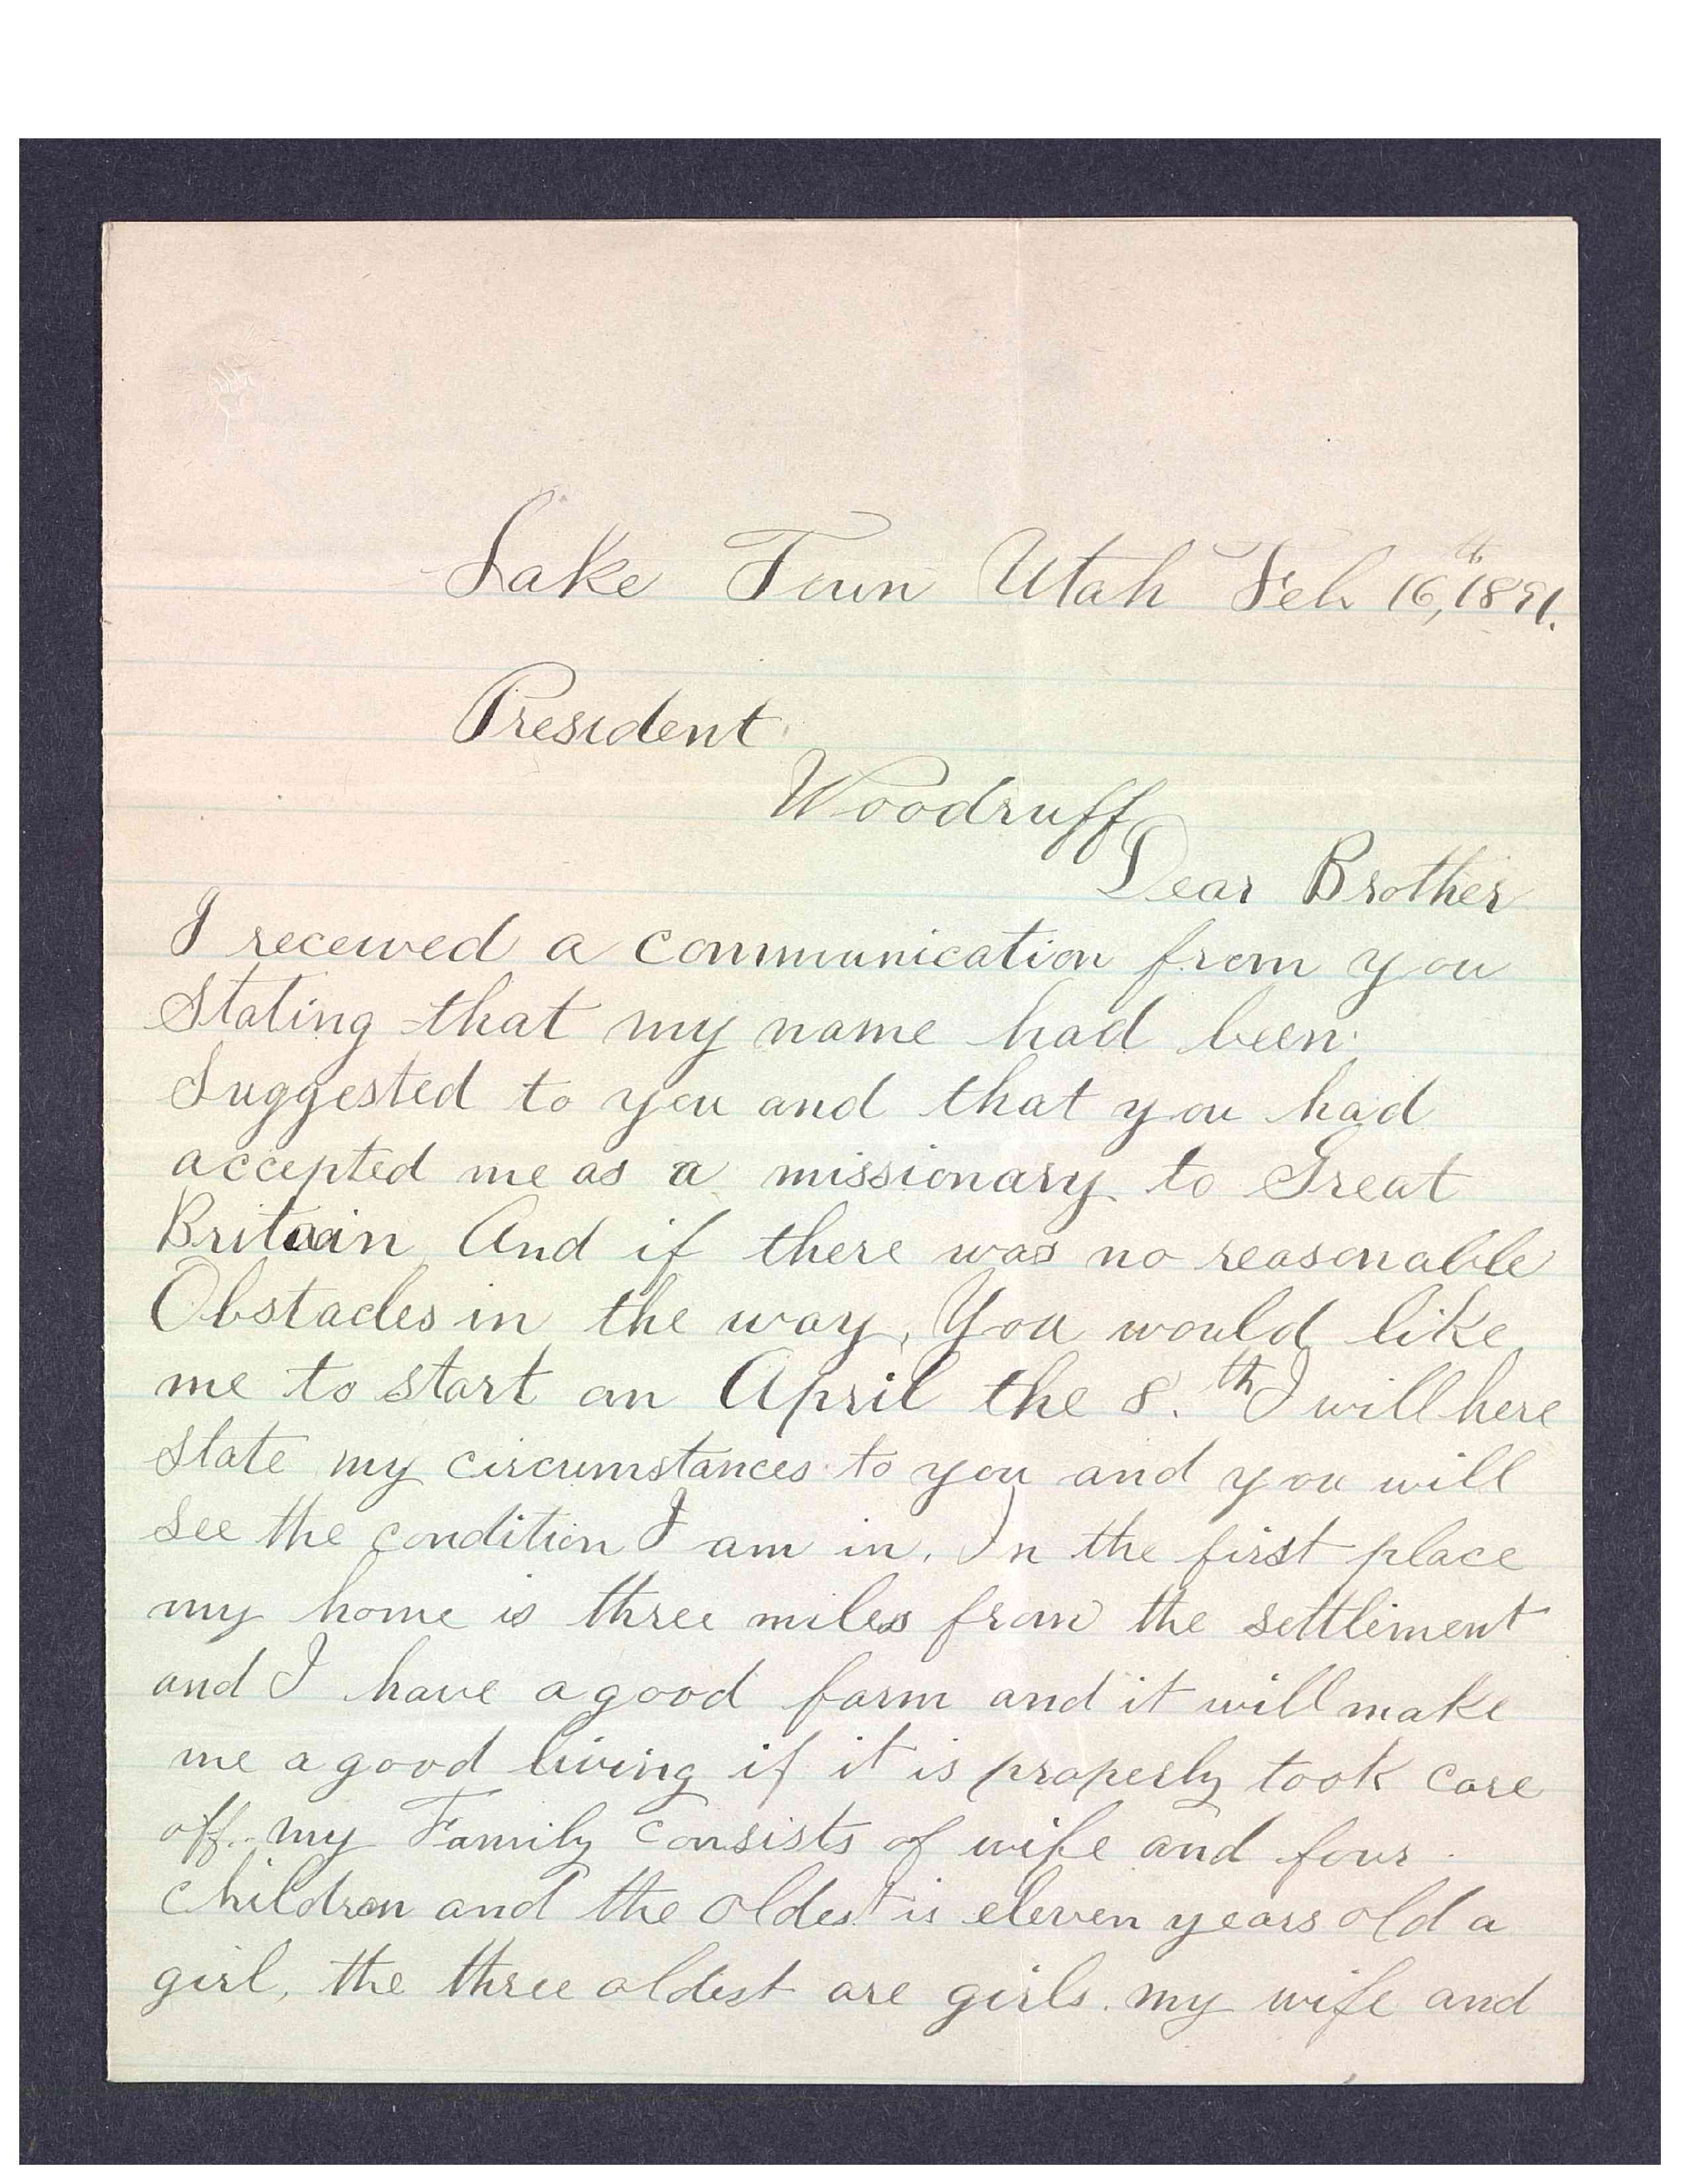 Lake Town Utah Feb 16,th 1891.
President
Woodruff
Dear Brother
I received a communication from you
Stating that my name had been
Suggested to you and that you had
accepted me as a missionary to Great
Britain And if there was no reasonable
Obstacles in the way, You would like
me to start on April the 8.th I will here
State my circumstances to you and you will
see the condition I am in. In the first place
my home is three miles from the settlement
and I have a good farm and it will make
me a good living if it is properly took care
off. my Family Consists of wife and four
children and the oldest is eleven years old a
girl, the three oldest are girls. my wife and